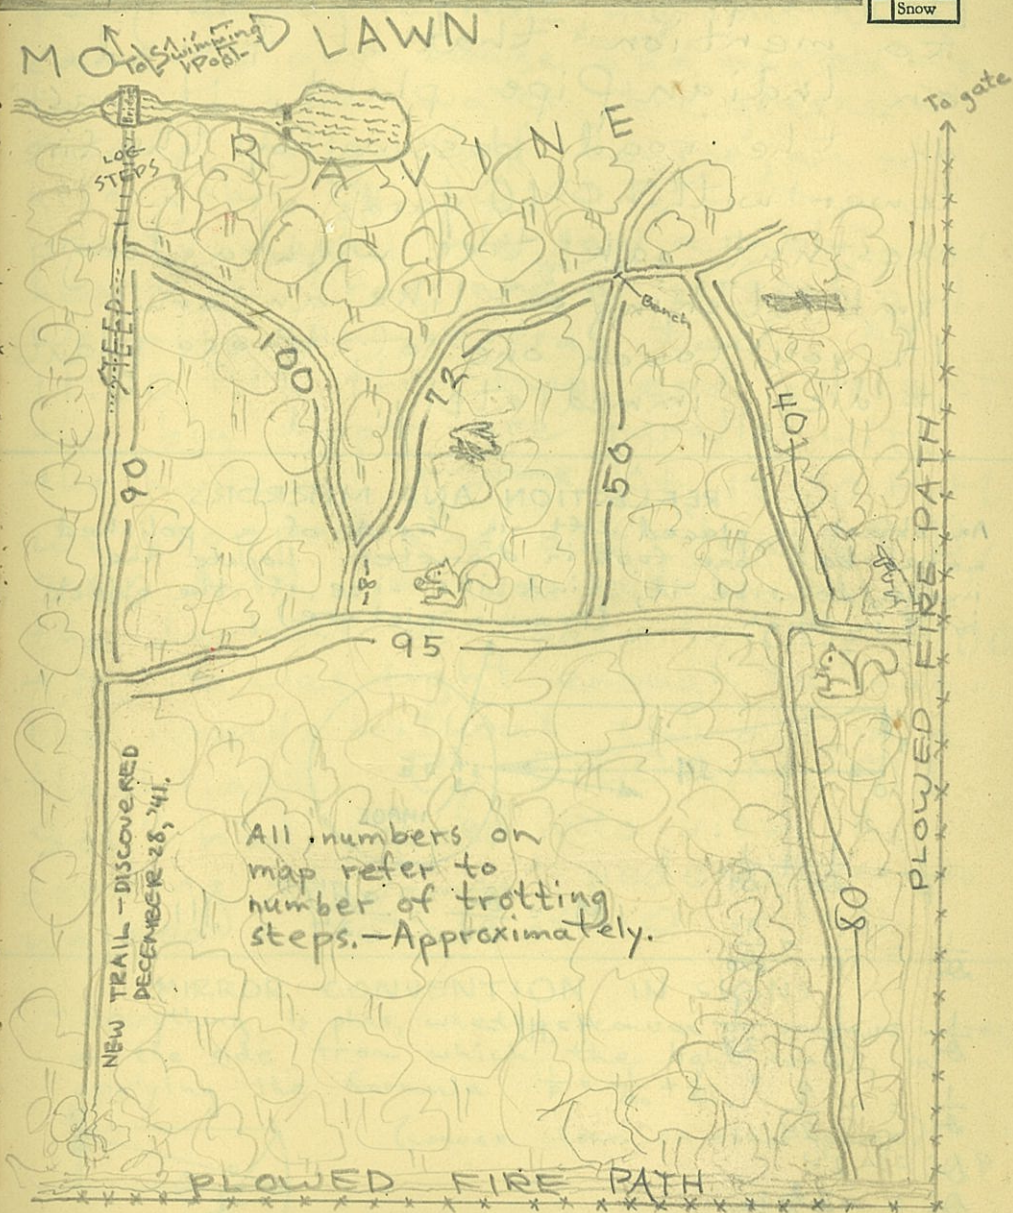 Snow
MOWED LAWN
To Swimming
Pool
To gate
Bridge
LOG
STEPS
RAVINE
STEEP
Bench
100
72
90
50
40
-8-
95
80
PLOWED FIRE PATH
NEW TRAIL-DISCOVERED
DECEMBER-28, '41.
All numbers on
map refer to
number of trotting
steps.—Approximately.
PLOWED FIRE PATH